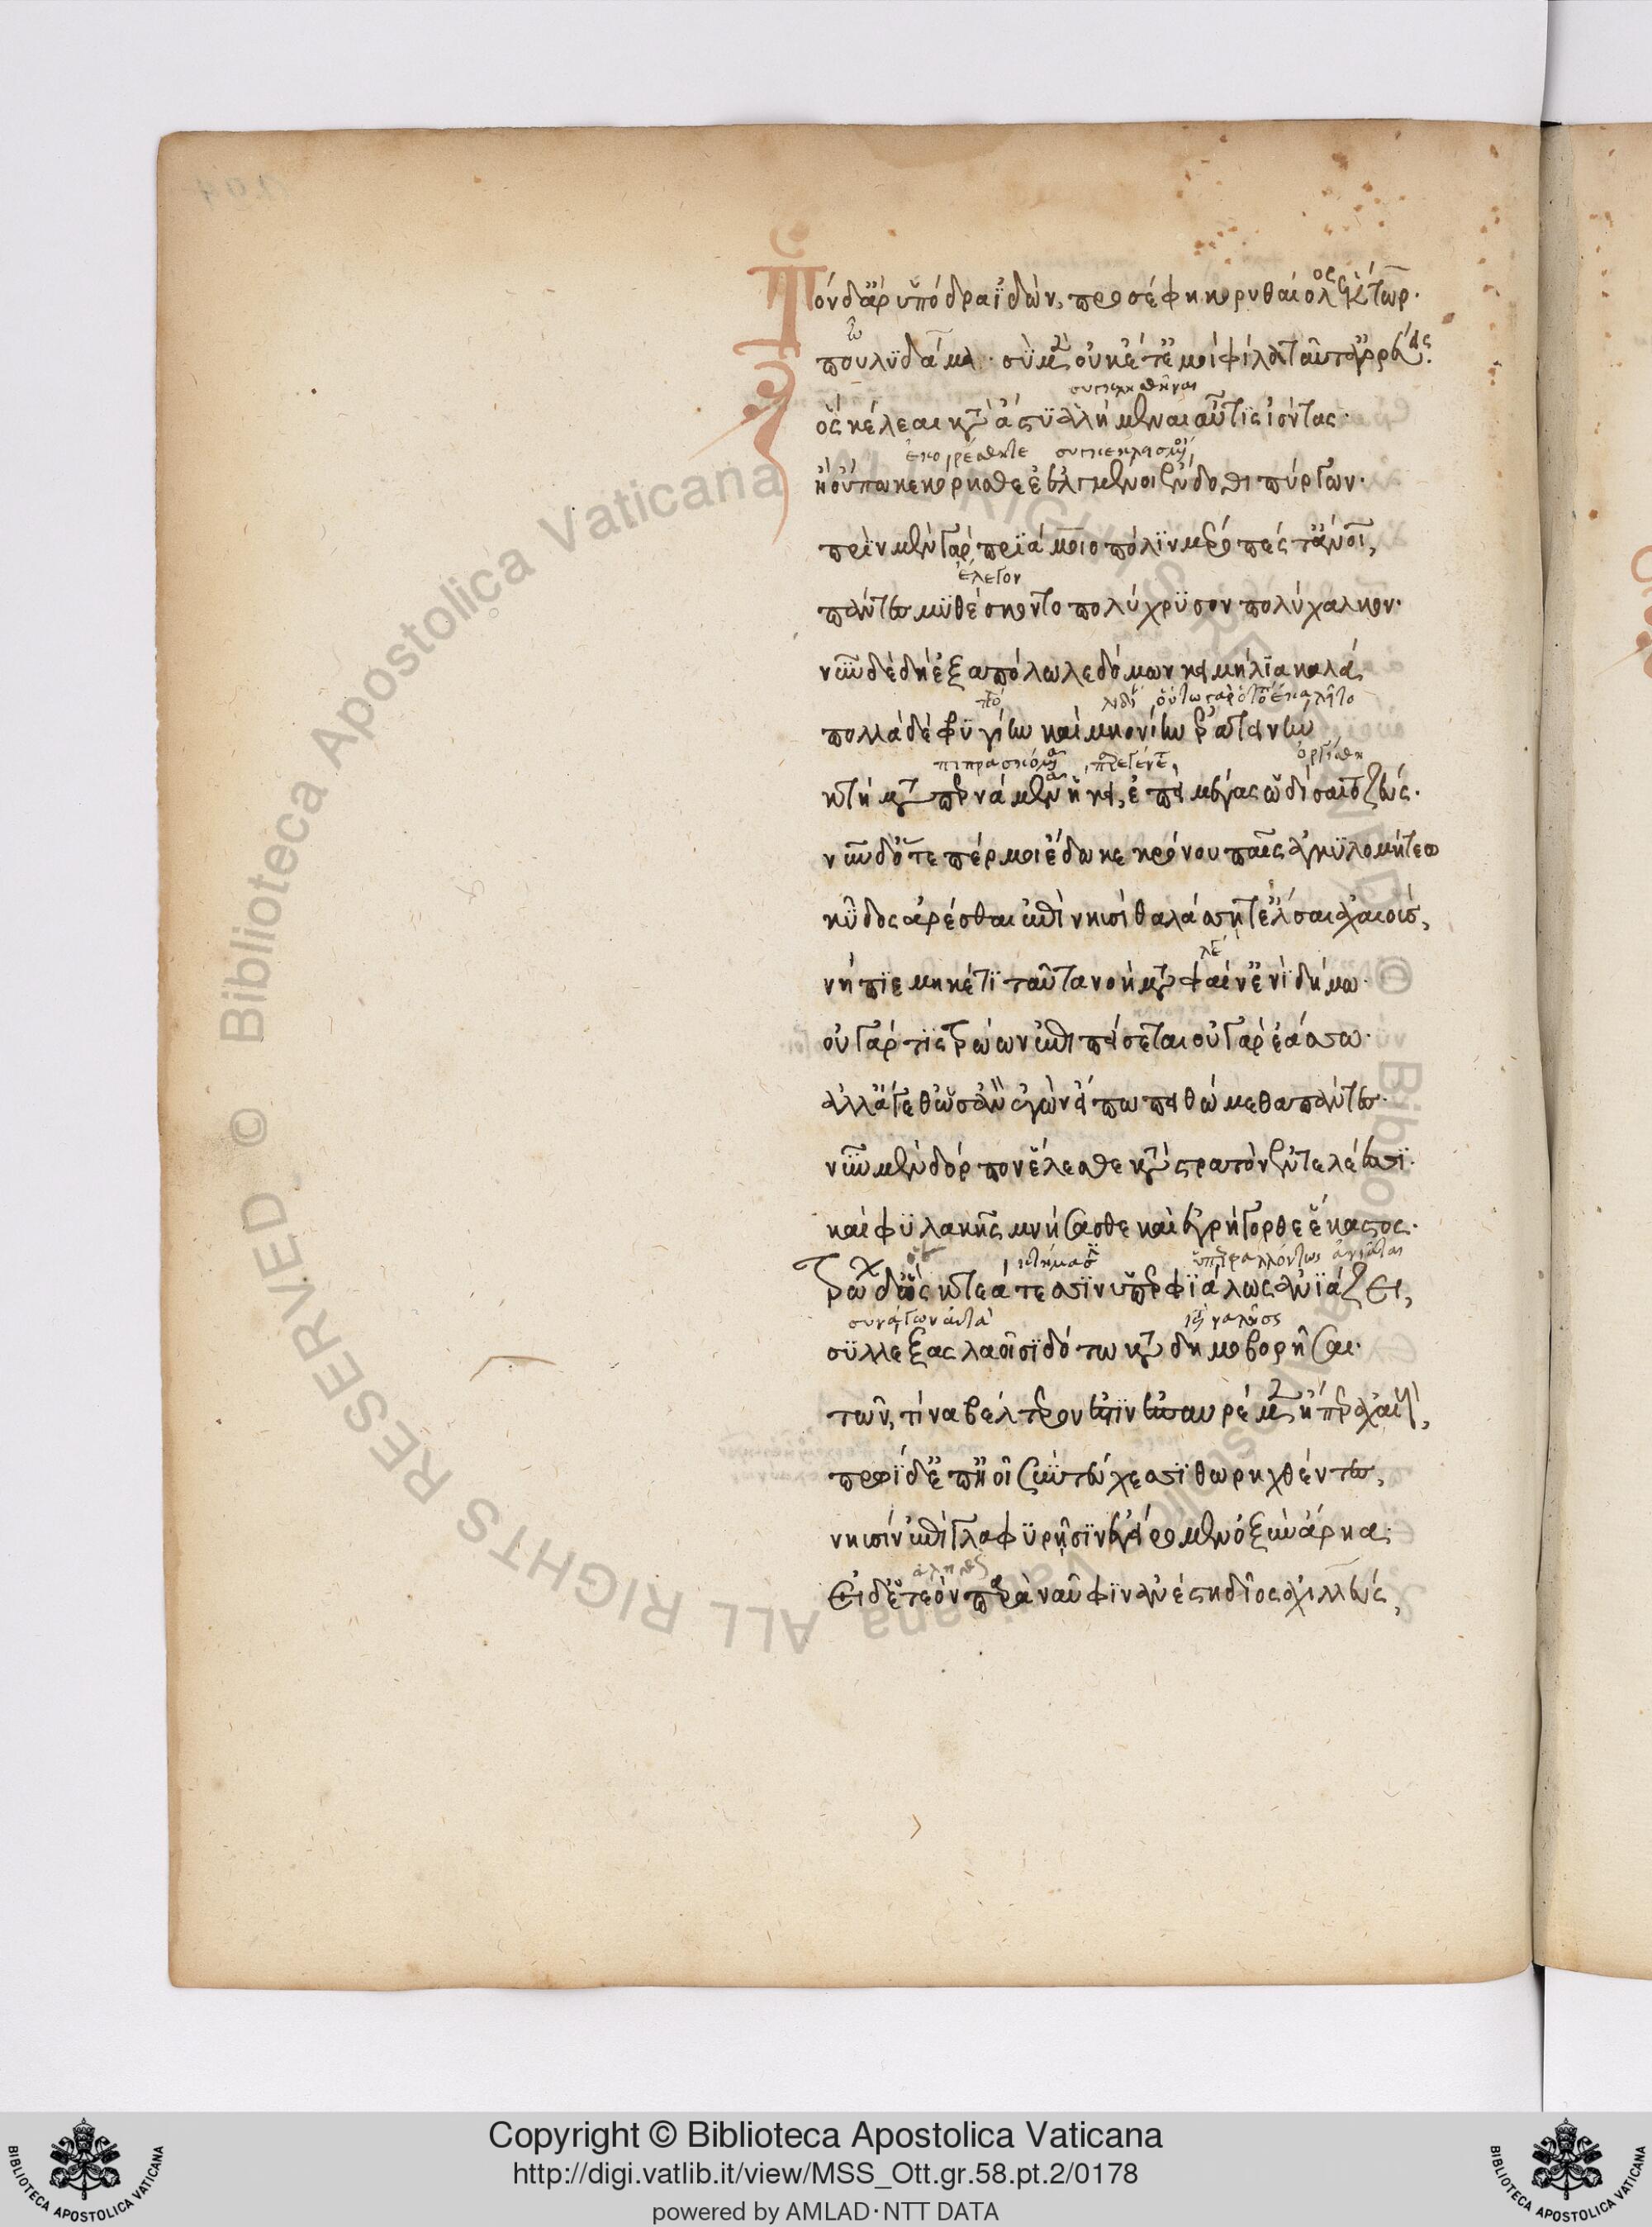 Τὸν δ' ἄρ' ὑπόδρα ἰδὼν, προσέφη κορυθαίολος Ἕκτωρ·
ὦ
πουλυδάμα· σὺ μὲν οὐκ ἔτ' ἐμοὶ φίλα ταῦτ' ἀγορεύεις·
ὃς κέλεαι κατὰ ἄστυ ἀλήμεναι αὖτις ἰόντας·
ἢ οὔπω κεκόρησθε ἐελμένοι ἔνδοθι πύργων·
πρὶν μὲν γὰρ πριάμοιο πόλιν μέροπες τ' ἄνθρωποι,
ἔλεγον
πάντες μυθέσκοντο πολύχρυσον πολύχαλκον·
νῦν δὲ δὴ ἐξαπόλωλε δόμων κειμήλια καλὰ
πολλὰ δὲ φρυγίην καὶ μηονίην ἐρατεινὴν
ὠργίσθη
κτήματα περνάμεν' ἥκει, ἐπεὶ μέγας ὠδύσατο ζεύς·
νῦν δ' ὅτε πέρ μοι ἔδωκε κρόνου παῖς ἀγκυλομήτεω
κῦδος ἀρέσθαι ἐπὶ νηυσὶ θαλάσσῃ τ' ἔλσαι ἀχαιούς,
νήπιε μηκέτι ταῦτα νοήματα φαῖν' ἐνὶ δήμω·
οὐ γάρ τις τρώων ἐπιπείσεται οὐ γὰρ ἐάσω·
ἀλλ' ἄγεθ' ὡς ἂν ἐγὼν εἴπω πειθώμεθα πάντες·
νῦν μὲν δόρπον ἕλεσθε κατὰ στρατὸν ἐν τελέεσσι·
καὶ φυλακῆς μνήσασθε καὶ ἐγρήγορθε ἕκαστος·
Τρώων δ' ὃς κτεάτεσσιν ὑπερφιάλως ἀνιάζει,
συλλέξας λαοῖσι δότω καταδημοβορῆσαι·
τῶν, τινα βέλτερον ἐστὶν ἐπαυρέμεν ἤπερ ἀχαιούς,
πρωῒ δ' ὑπηοῖοι σὺν τεύχεσι θωρηχθέντες,
νηυσὶν ἐπὶ γλαφυρῇσιν ἐγείρομεν ὀξὺν ἄρηα·
Εἰ δ' ἐτεὸν παρὰ ναῦφιν ἀνέστη δῖος ἀχιλλεύς,
Copyright © Biblioteca Apostolica Vaticana
http://digi.vatlib.it/view/MSS_Ott.gr.58.pt.2/0178
powered by AMLAD·NTT DATA
BIBLIOTECA APOSTOLICA VATICANA
BIBLIOTECA APOSTOLICA VATICANA